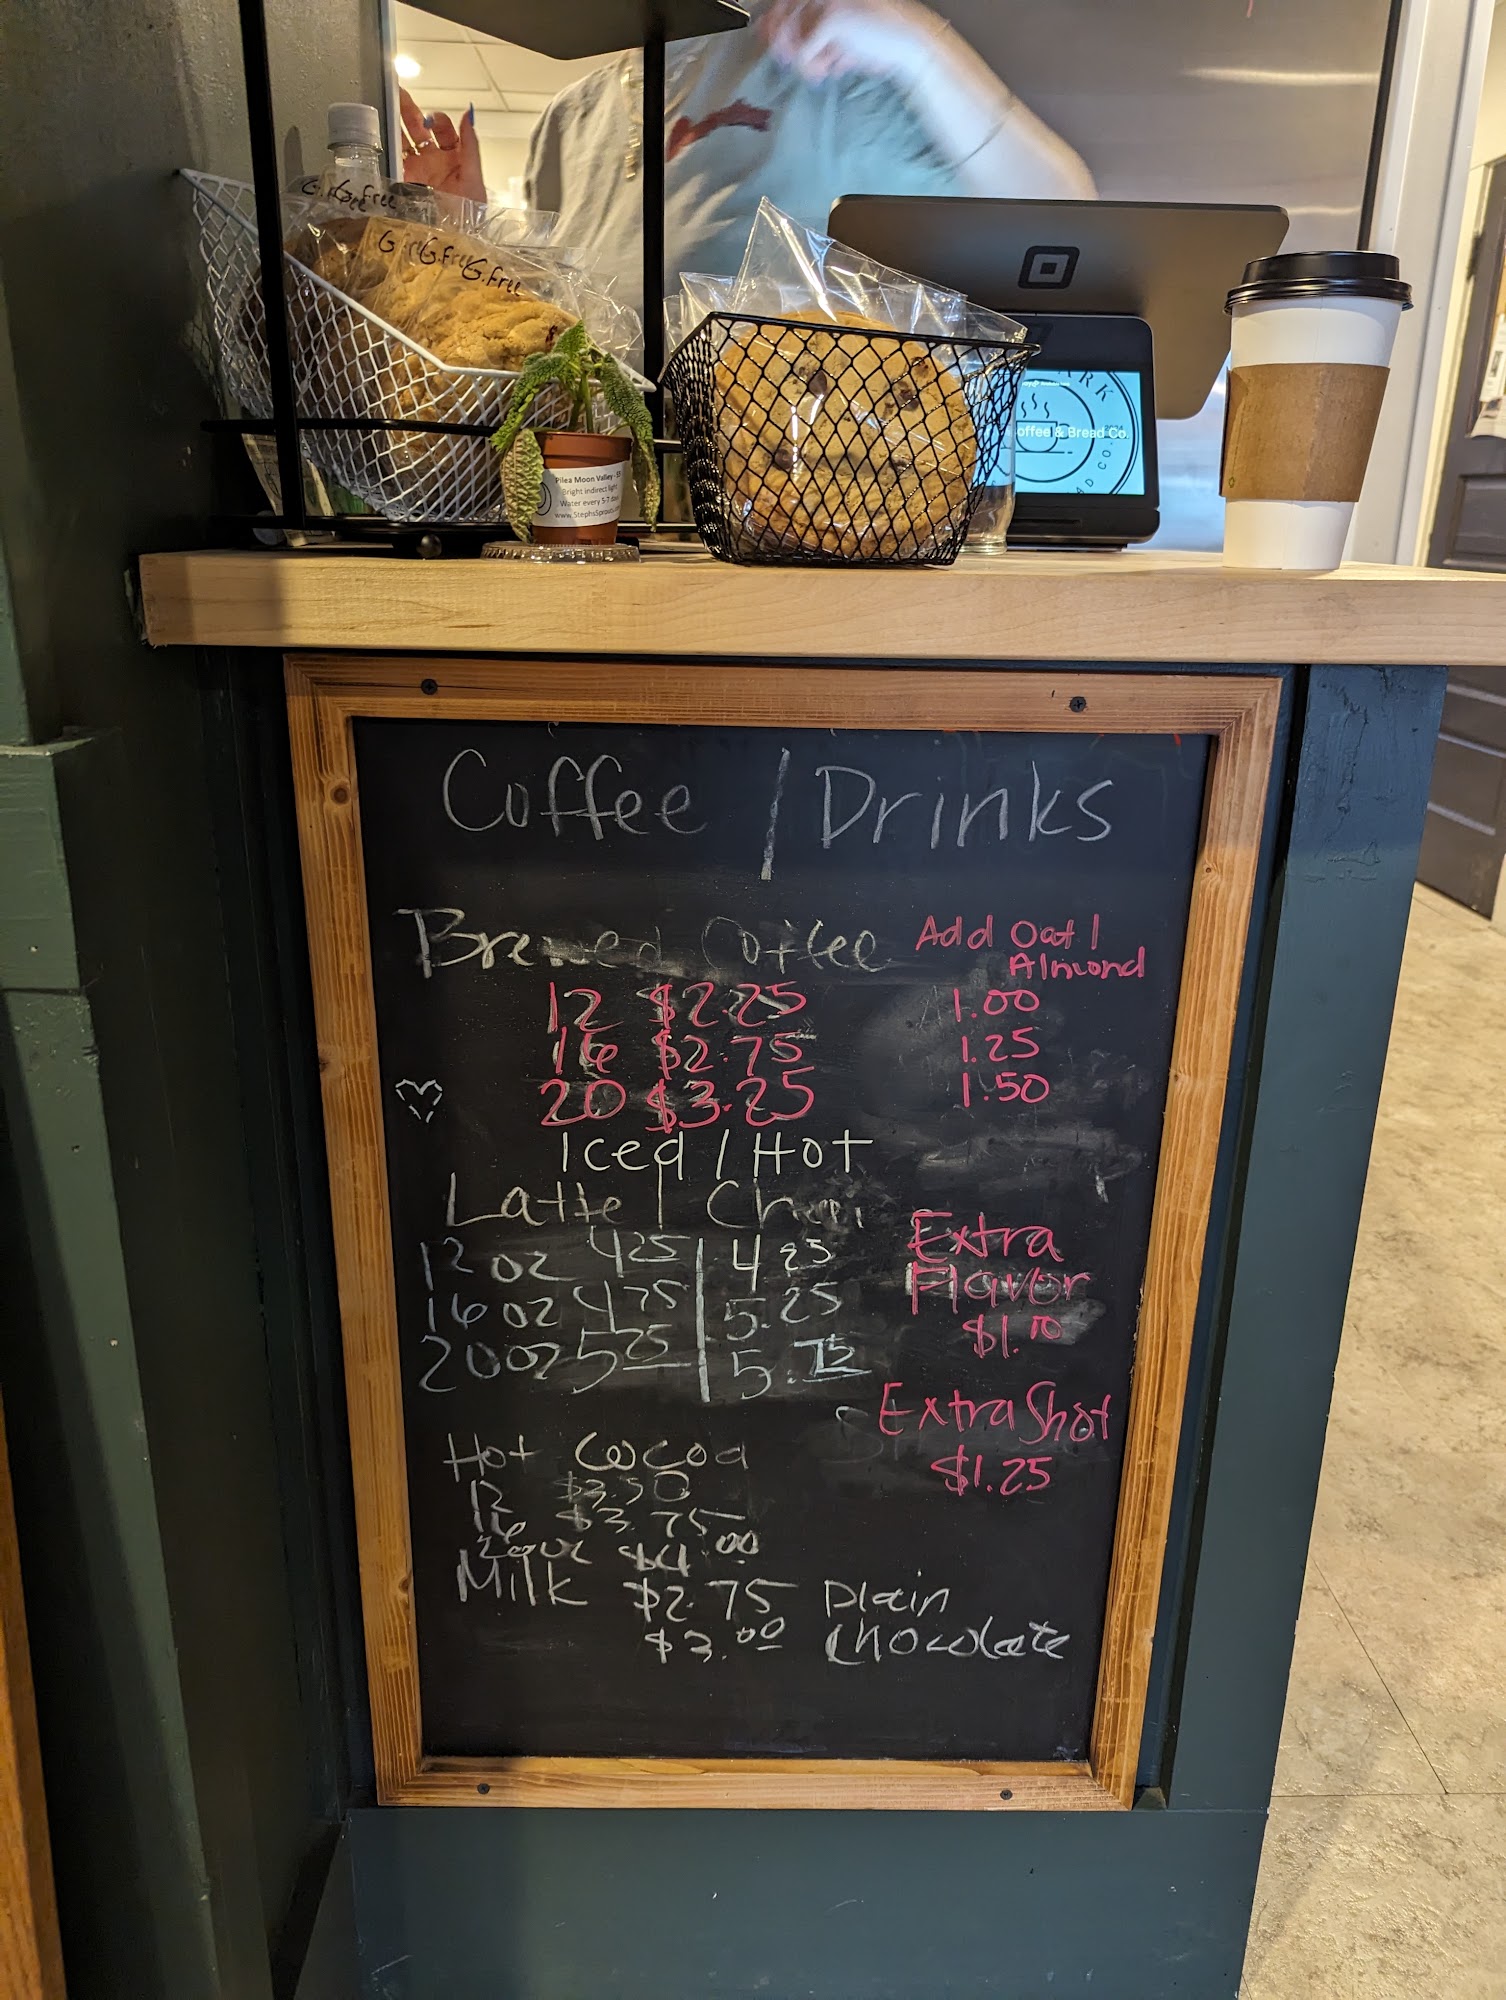 G.Free
G.Free
G.Free
Pilea Moon Valley
Bright indirect light
Water every 5-7 days
www.StephsSprouts
Coffee & Bread Co.
Coffee / Drinks
Brewed Coffee
Add Oat |
Almond
12 $2.25 1.00
16 $2.75 1.25
20 $3.25 1.50
Iced / Hot
Latte | Chai
12 oz 4 25 | 4 25
16 oz 4 75 | 5.25
20 oz 5 25 | 5.75
Extra
Flavor
$1.00
Extra Shot
$1.25
Hot Cocoa
12 $3.50
16 $3.75
20oz $4.00
Milk $2.75 Plain
$3.00 Chocolate